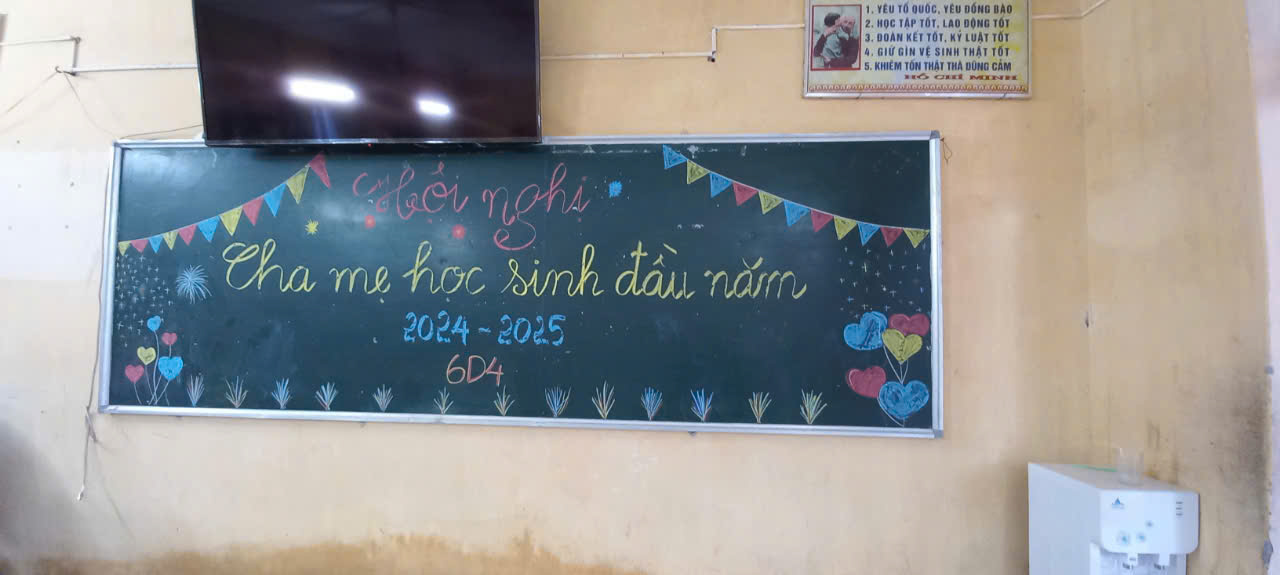 1. YÊU TỔ QUỐC, YÊU ĐỒNG BÀO
2. HỌC TẬP TỐT, LAO ĐỘNG TỐT
3. ĐOÀN KẾT TỐT, KỶ LUẬT TỐT
4. GIỮ GÌN VỆ SINH THẬT TỐT
5. KHIÊM TỐN THẬT THÀ DŨNG CẢM
HỒ CHÍ MINH
Hội nghị
Cha mẹ học sinh đầu năm
2024 - 2025
6D4